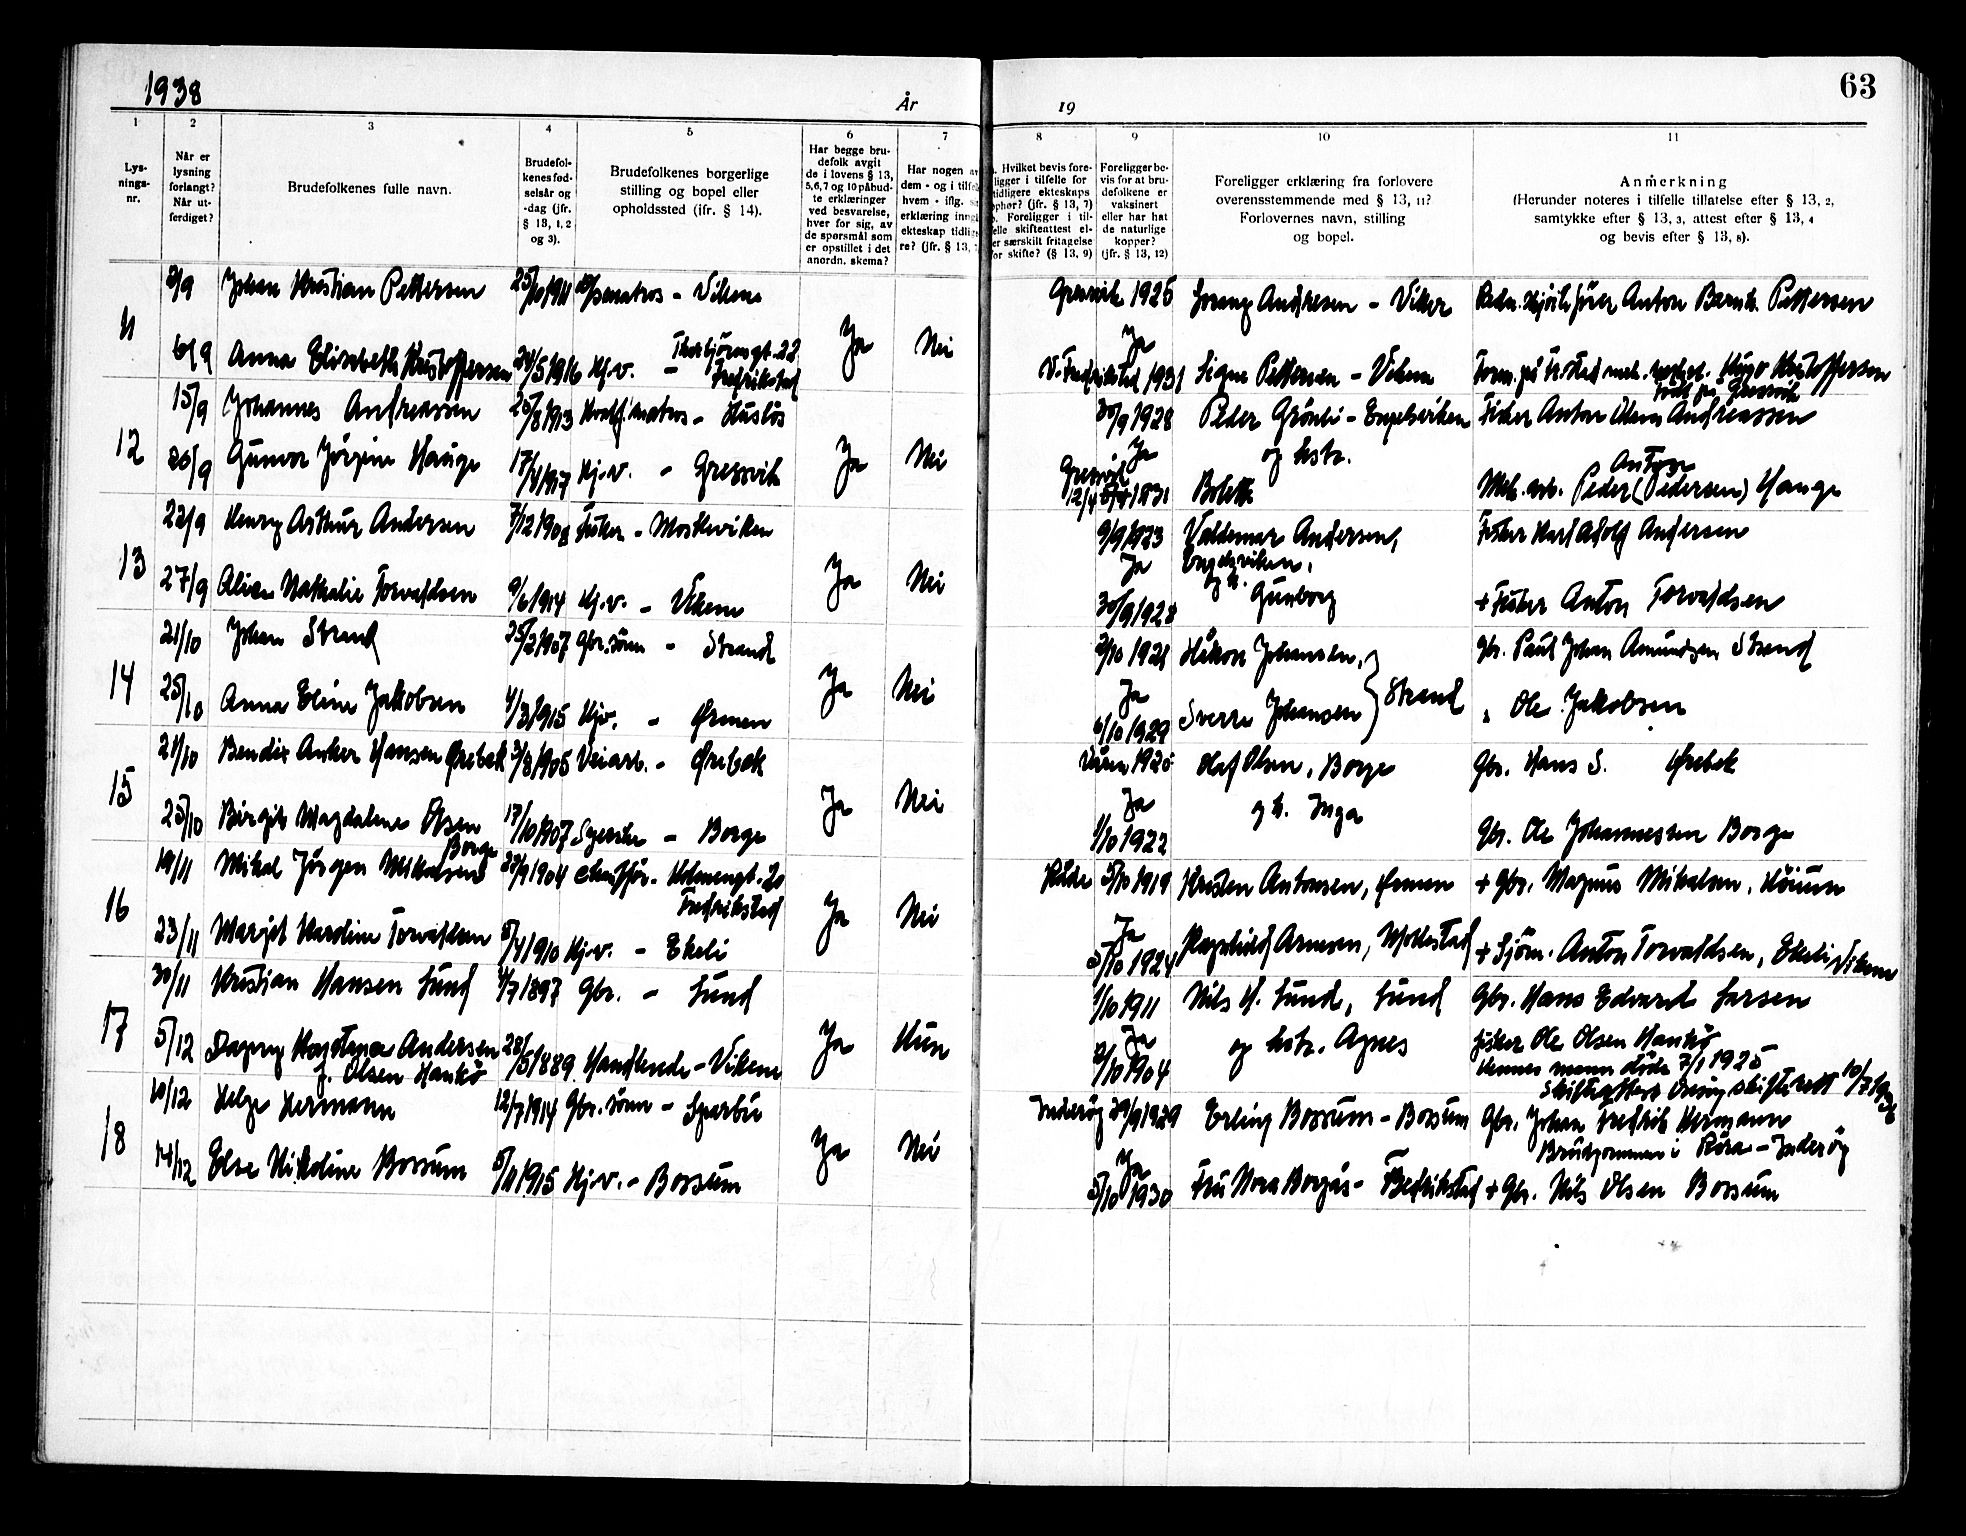 1938
År
19
63
1
2
3
4
5
6
7
8
9
10
11
Lys-
nings-
nr.
Når er
lysning
forlangt?
Når ut-
ferdiget?
Brudefolkenes fulle navn.
Brudefol-
kenes fød-
selsår og
-dag (jfr.
§ 13, 1, 2
og 3).
Brudefolkenes borgerlige
stilling og bopel eller
opholdssted (ifr. § 14).
Har begge bru-
defolk avgit
de i lovens § 13,
5,6,7 og 10 påbud-
te erklæringer
ved besvarelse,
hver for sig, av
de spørsmål som
er opstillet i det
anordn. skema?
Har nogen av
dem - og i tilfel
hvem - iflg.
erklæring inngå
ekteskap tidlige
re? (jfr. § 13,
Hvilket bevis fore-
ligger i tilfelle for
tidligere ekteskaps
ophør? (jfr. § 13, 7)
Foreligger i til-
elle skifteattest el-
er særskilt fritagelse
or skifte? (§ 13, 9)
Foreligger be-
vis for at bru-
defolkene er
vaksinert
eller har hat
de naturlige
kopper?
(jfr. § 13, 12)
Foreligger erklæring fra forlovere
overensstemmende med § 13, 11?
Forlovernes navn, stilling
og bopel.
Anmerkning
(Herunder noteres i tilfelle tillatelse efter § 13, 2,
samtykke efter § 13, 3, attest efter § 13, 4
og bevis efter § 13, 8).
11
2/9 Johan Kristian Pettersen 25/10 1911 matros - Vikene
Gressvik 1926 Lorang Andresen - Viker Anton Bernh. Pettersen
6/9 Anna Elisabeth Kristoffersen 24/5 1916 Hj.v. - Thorbjörnsgt. 22
Fredrikstad
Ja Nei
Ja
V. Fredrikstad 1931 Signe Pettersen - Vikene Form. på Kristoffersen
Født på Gressvik
12
15/9 Johannes Andreassen 25/8 1913 matros - Husløs
30/9 1928 Peder Grönli - Engelsviken Fisker Anton Andreassen
20/9 Gunvor Jörgine Hauge 17/4 1917 Hj.v. - Gressvik
Ja Nei
Ja og hstr.
Gressvik
12/4 1931 Bolette
Anton
Mek. arb. Peder (Pedersen) Hauge
13
22/9 Henry Arthur Andersen 7/12 1908 Fisker - Moskeviken
9/9 1923 Valdemar Andersen, Fisker Karl Adolf Andersen
27/9 Alise Nathalie Torvaldsen 9/6 1914 Hj.v. - Vikene
Ja Nei
Ja Engelsviken,
og h.
30/9 1928 Gunborg + Fisker Anton Torvaldsen
14
21/10 Johan Strand 25/2 1907 Gbr.sönn - Strand
2/10 1921 Håkon Johansen, Gbr. Paul Johan Amundsen Strand
25/10 Anna Eline Jakobsen 4/3 1915 Hjv. - Ørmen
Ja Nei
Ja
6/10 1929 Sverre Johansen } Strand " Ole Jakobsen
15
21/10 Bendix Anker Hansen Ørebek 3/8 1905 Veiarb. - Ørebek
Våren 1920 Olaf Olsen, Borge Gbr. Hans S. Ørebek
25/10 Birgit Magdalene Olsen
Borge
17/10 1907 - Borge
Ja Nei
Ja og h. Inga
1/10 1922 Gbr. Ole Johannessen Borge
16
19/11 Mikal Jörgen Mikalsen 22/9 1904 Chaufför. Holmengt. 20
Fredrikstad
Råde 5/10 1919 Kristen Antonsen, Ørmen + Gbr. Magnus Mikalsen, Höium
23/11 Margit Karoline Torvaldsen 5/4 1910 Hj.v. - Ekeli
Ja Nei
Ja
5/10 1924 Ragnhild Arnesen, + Sjöm. Anton Torvaldsen, Ekeli Vikene
17
30/11 Kristian Hansen Lund 4/7 1897 Gbr. - Lund
1/10 1911 Nils H. Lund, Lund Gbr. Hans Edvard Larsen
5/12 Dagny Andersen
f. Olsen Hankö
28/5 1889. Handlende - Vikene
Ja Hun
Ja og hstr. Agnes
2/10 1904
Fisker Ole Olsen Hankö
Hennes mann döde 7/1 1925
Skifteattest Onsöy skifterett 10/7 1936
18
10/12 Helge Hermann 12/7 1914 Gbr.sönn - Sparbu
Inderøy 29/9 1929 Erling Bossum - Bossum Gbr. Johan Fredrik Hermann
Brudgommen i Röra - Inderöy
14/12 Else Nikoline Bossum 5/11 1915 Hj.v. - Bossum
Ja Nei
Ja
5/10 1930 Fru Nora Borgås - Fredrikstad + Gbr. Nils Olsen Bossum